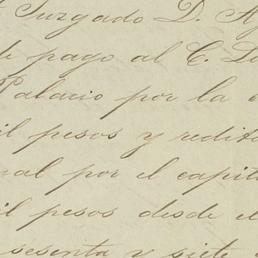 Juzgado D. A
de pago al C. L
Palacio por la
il pesos y redito
ual por el capit
il pesos desde el
sesenta y siete